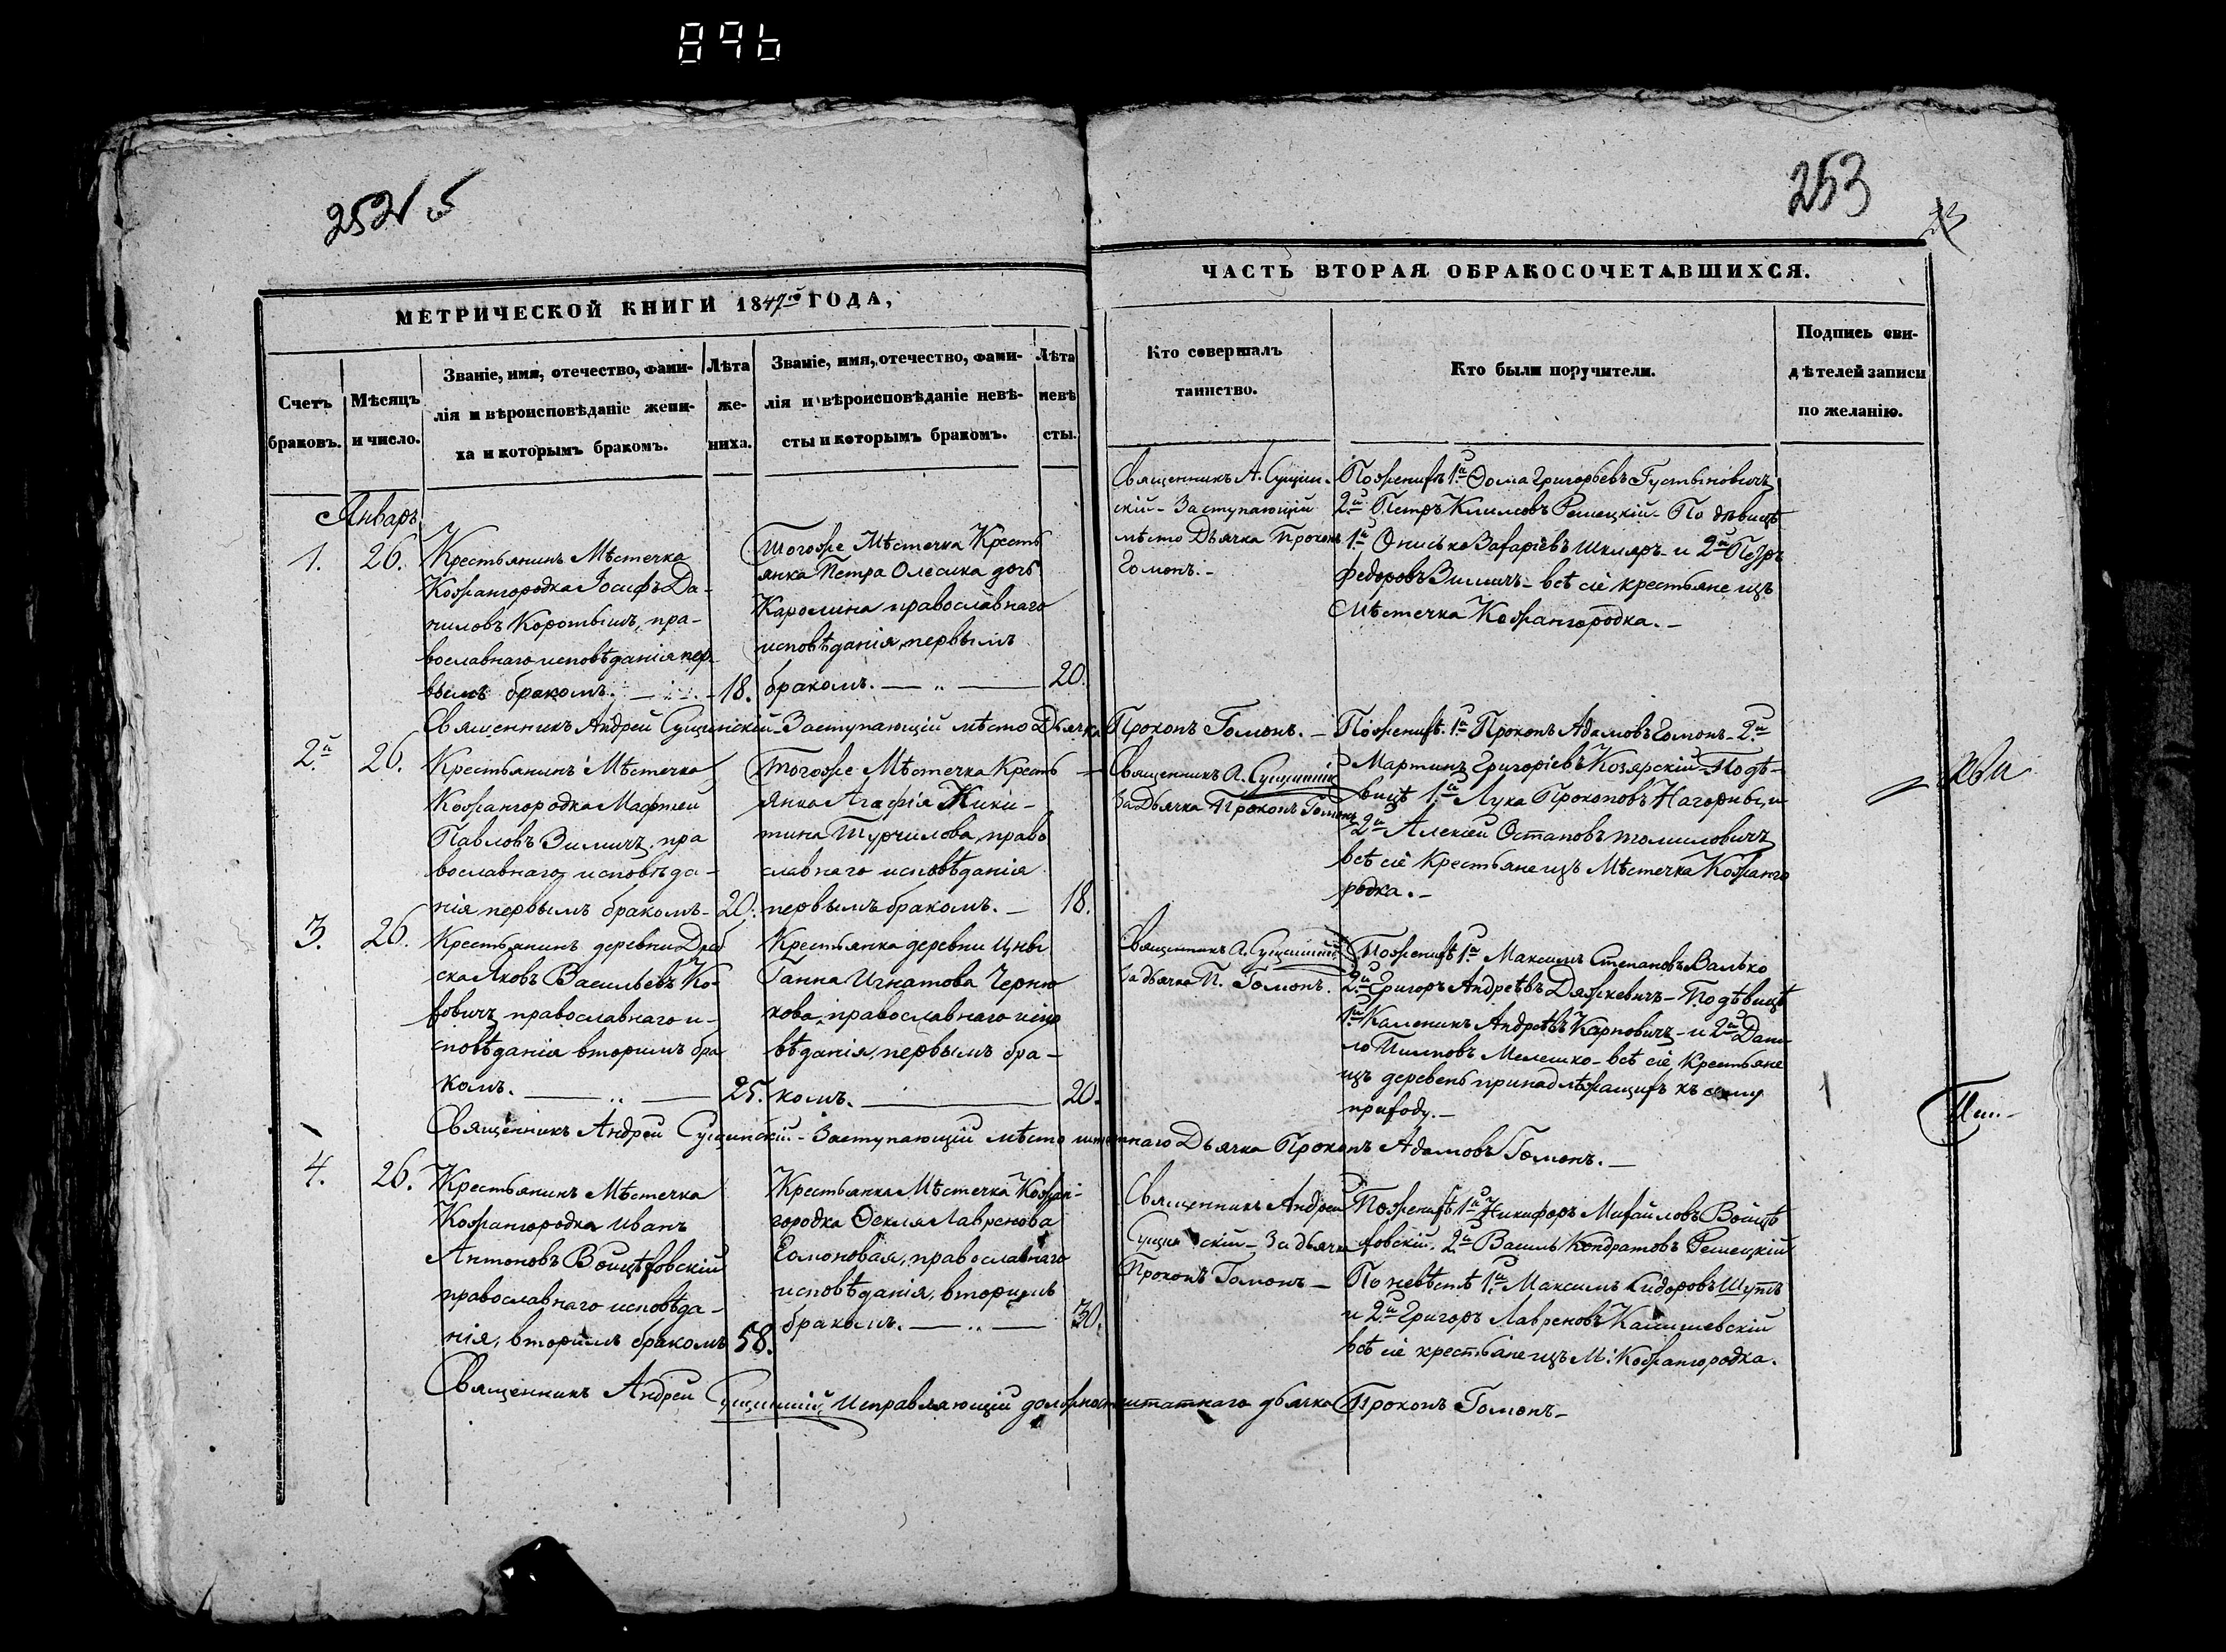 896
252об
253
МЕТРИЧЕСКОЙ КНИГИ 1847го ГОДА,
ЧАСТЬ ВТОРАЯ ОБРАКОСОЧЕТАВШИХСЯ.
Счетъ
браковъ.
Мѣсяцъ
и число.
Званіе, имя, отечество, фами-
лія и вѣроисповѣданіе жени-
ха и которымъ бракомъ.
Лѣта
же-
ниха.
Званіе, имя, отечество, фами-
лія и вѣроисповѣданіе невѣ-
сты и которымъ бракомъ.
Лѣта
невѣ
сты.
Кто совершалъ
таинство.
Кто были поручители.
Подпись сви-
дѣтелей записи
по желанію.
Январь
1.
26.
Крестьянинъ Мѣстечка
Кожангородка Іосифъ Да-
ниловъ Коротышъ, пра-
вославнаго исповѣданія пер-
вымъ бракомъ.
18.
Тогоже Мѣстечка Кресть
янка Петра Олесика дочь
Каролина православнаго
исповѣданія, первымъ
бракомъ.
20.
Священникъ А. Сущин-
скій - Заступающій
мѣсто Дьячка Прокопъ
Гомонъ. -
По женихѣ 1й Ѳома Григорьевъ Густыновичъ
2й Петръ Климовъ Ремецкій - По дѣвицѣ
1й Онисько Захаріевъ Шкляръ - и 2й Петръ
Федоровъ Зимичъ - всѣ сіе крестьяне изъ
Мѣстечка Кожангородка. -
Священникъ Андрей Сущинскій - Заступающій мѣсто Дьячка Прокопъ Гомонъ. -
2й
26.
Крестьянинъ Мѣстечка
Кожангородка Мафтей
Павловъ Зимичъ, пра
вославнаго исповѣда-
нія первымъ бракомъ -
20.
Тогоже Мѣстечка Кресть
янка Агафія Ники-
тина Турчилова, право
славнаго исповѣданія
первымъ бракомъ. -
18.
Священникъ А. Сущинскій
За Дьячка Прокопъ Гомонъ
По женихѣ. 1й Прокопъ Адамовъ Гомонъ - 2й
Мартинъ Григоріевъ Козярскій - По дѣ-
вицѣ 1й Лука Прокоповъ Нагорный, и
2й Алексѣй Остаповъ Томиловичъ
всѣ сіе Крестьяне изъ Мѣстечка Кожанго
родка. -
3.
26.
Крестьянинъ деревни Дреб
ска Яковъ Васильевъ Ко-
ховичъ, православнаго и-
сповѣданія вторымъ бра
комъ.
25.
Крестьянка деревни Цны
Ганна Игнатова Черню
кова, православнаго испо
вѣданія, первымъ бра-
комъ.
20.
Священникъ А. Сущинскій
за дьячка П. Гомонъ.
По женихѣ 1й Максимъ Степановъ Валько
2й Григоръ Андреѣвъ Дяжкевичъ - По дѣвицѣ
1й Каленикъ Андреѣвъ Карповичъ - и 2й Дани-
ло Пилиповъ Мелешко - всѣ сіе Крестьяне
изъ деревень принадлѣжащихъ къ сему
приходу. -
Священникъ Андрей Сущинскій - Заступающій мѣсто штатнаго Дьячка Прокопъ Адамовъ Гомонъ. -
4.
26.
Крестьянинъ Мѣстечка
Кожангородка Иванъ
Антоновъ Войцѣховскій
православнаго исповѣда-
нія, вторымъ бракомъ
58.
Крестьянка Мѣстечка Кожан-
городка Ѳекла Лавренова
Гомоновая, православнаго
исповѣданія, вторымъ
бракомъ.
30.
Священникъ Андрей
Сущинскій - За дьячка
Прокопъ Гомонъ -
По женихѣ 1й Никифоръ Михайловъ Войцѣ
ховскій, 2й Василь Кондратовъ Ремецкій
По невѣстѣ 1й Максимъ Сидоровъ Шупъ
и 2й Григоръ Лавреновъ Камишевскій
всѣ сіе крестьяне изъ М: Кожангородка.
Священникъ Андрей Сущинскій, Исправляющій должность штатнаго дьячка Прокопъ Гомонъ -